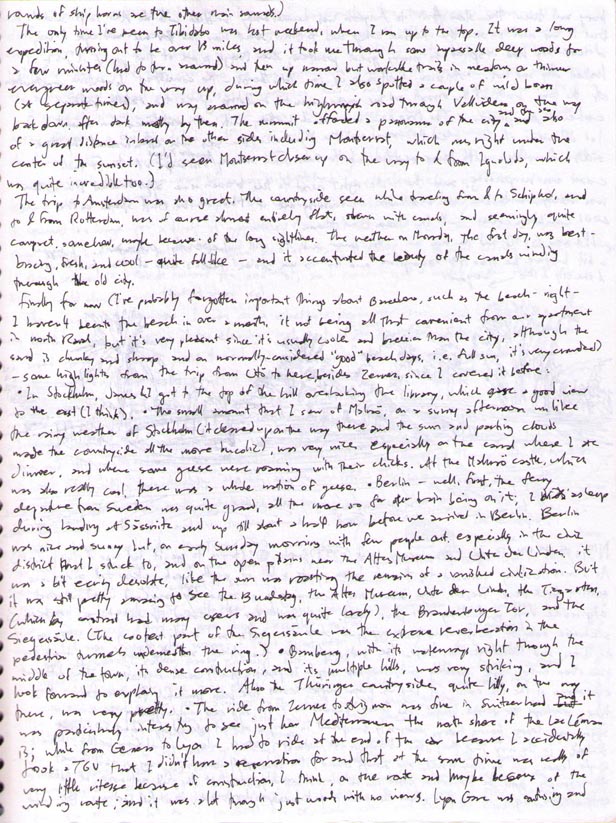 sounds of ship horns are the other main sounds.)
The only time I've been to Tibidabo was last weekend, when I ran up to the top. It was a long
expedition, turning out to be over 13 miles and it took me through some deep woods for
a few minutes and then up narrow but workable trails in meadow or thinner
evergreen woods on the way up, during which time I also spotted a couple of wild boars
(at separate times), and on the road through Vallvidrera on the way
back down, after dark mostly by then. The summit afforded a panorama of the city and also
of a great distance inland on the other side, including Montserrat, which was right under the
center of the sunset. (I'd seen Montserrat close up on the way to & from Igualada, which
was quite incredible too.)
The trip to Amsterdam was also great. The countryside seen while traveling from & to Schiphol, and
to & from Rotterdam, was of course almost entirely flat, strewn with canals, and seemingly quite
compact, somehow, maybe because of the long sightlines. The weather on Monday, the first day, was best -
bracing, fresh, and cool - quite fall-like - and it accentuated the beauty of the canals winding
through the old city.
Finally for now (I've probably forgotten important things about Barcelona, such as the beach - right -
I haven't been to the beach in over a month, it not being all that convenient from our apartment
in north Raval, but it's very pleasant since it's usually cooler and breezier than the city, although the
sand is chunky and sharp and on normally-considered "good" beach days, i.e. full sun, it's very crowded)
- some highlights from the trip from Utö to here besides Zernez, since I covered it before:
• In Stockholm, James & I got to the top of the hill overlooking the library, which gave a good view
to the east (I think). • The small amount that I saw of Malmö, on a sunny afternoon unlike
the rainy weather of Stockholm (it cleared up on the way there and the sun and parting clouds
made the countryside all the more bucolic), was very nice, especially on the canal where I ate
dinner, and where some geese were roaming with their chicks. At the Malmö castle, which
was also really cool, there was a whole nation of geese. • Berlin - well, first, the ferry
departure from Sweden was quite grand, all the more so for our train being on it; I was asleep
during landing at Sassnitz and up till about a half hour before we arrived in Berlin. Berlin
was nice and sunny, but, on early Sunday morning with few people out, especially in the civic
district that I stuck to, and on the open plazas near the Altes Museum and Unter den Linden, it
was a bit eerily desolate, like the sun was roasting the remains of a vanished civilization. But
it was still pretty amazing to see the Bundestag, the Altes Museum, Unter den Linden, the Tiergarten,
(which by contrast had many users and was quite lovely), the Brandenburger Tor, and the
Siegessäule. (The coolest part of the Siegessäule was the extreme reverberation in the
pedestrian tunnels underneath the ring.) • Bamberg, with its waterways right through the
middle of the town, its dense construction, and its multiple hills, was very striking, and I
look forward to exploring it more. Also the Thüringer countryside, quite hilly, on the way
there, was very pretty. • The ride from Zernez to this town was fine in Switzerland and it
was particularly interesting to see just how Mediterranean the north shore of the Lac Léman
is; while from Geneva to Lyon I had to ride at the end of the car because I accidentally
took a TGV that I didn't have a reservation for and that at the same time was really of
very little vitesse because of construction, I think, on the route and maybe because of the
winding route; and it was a lot through just woods with no views. Lyon Gare was and